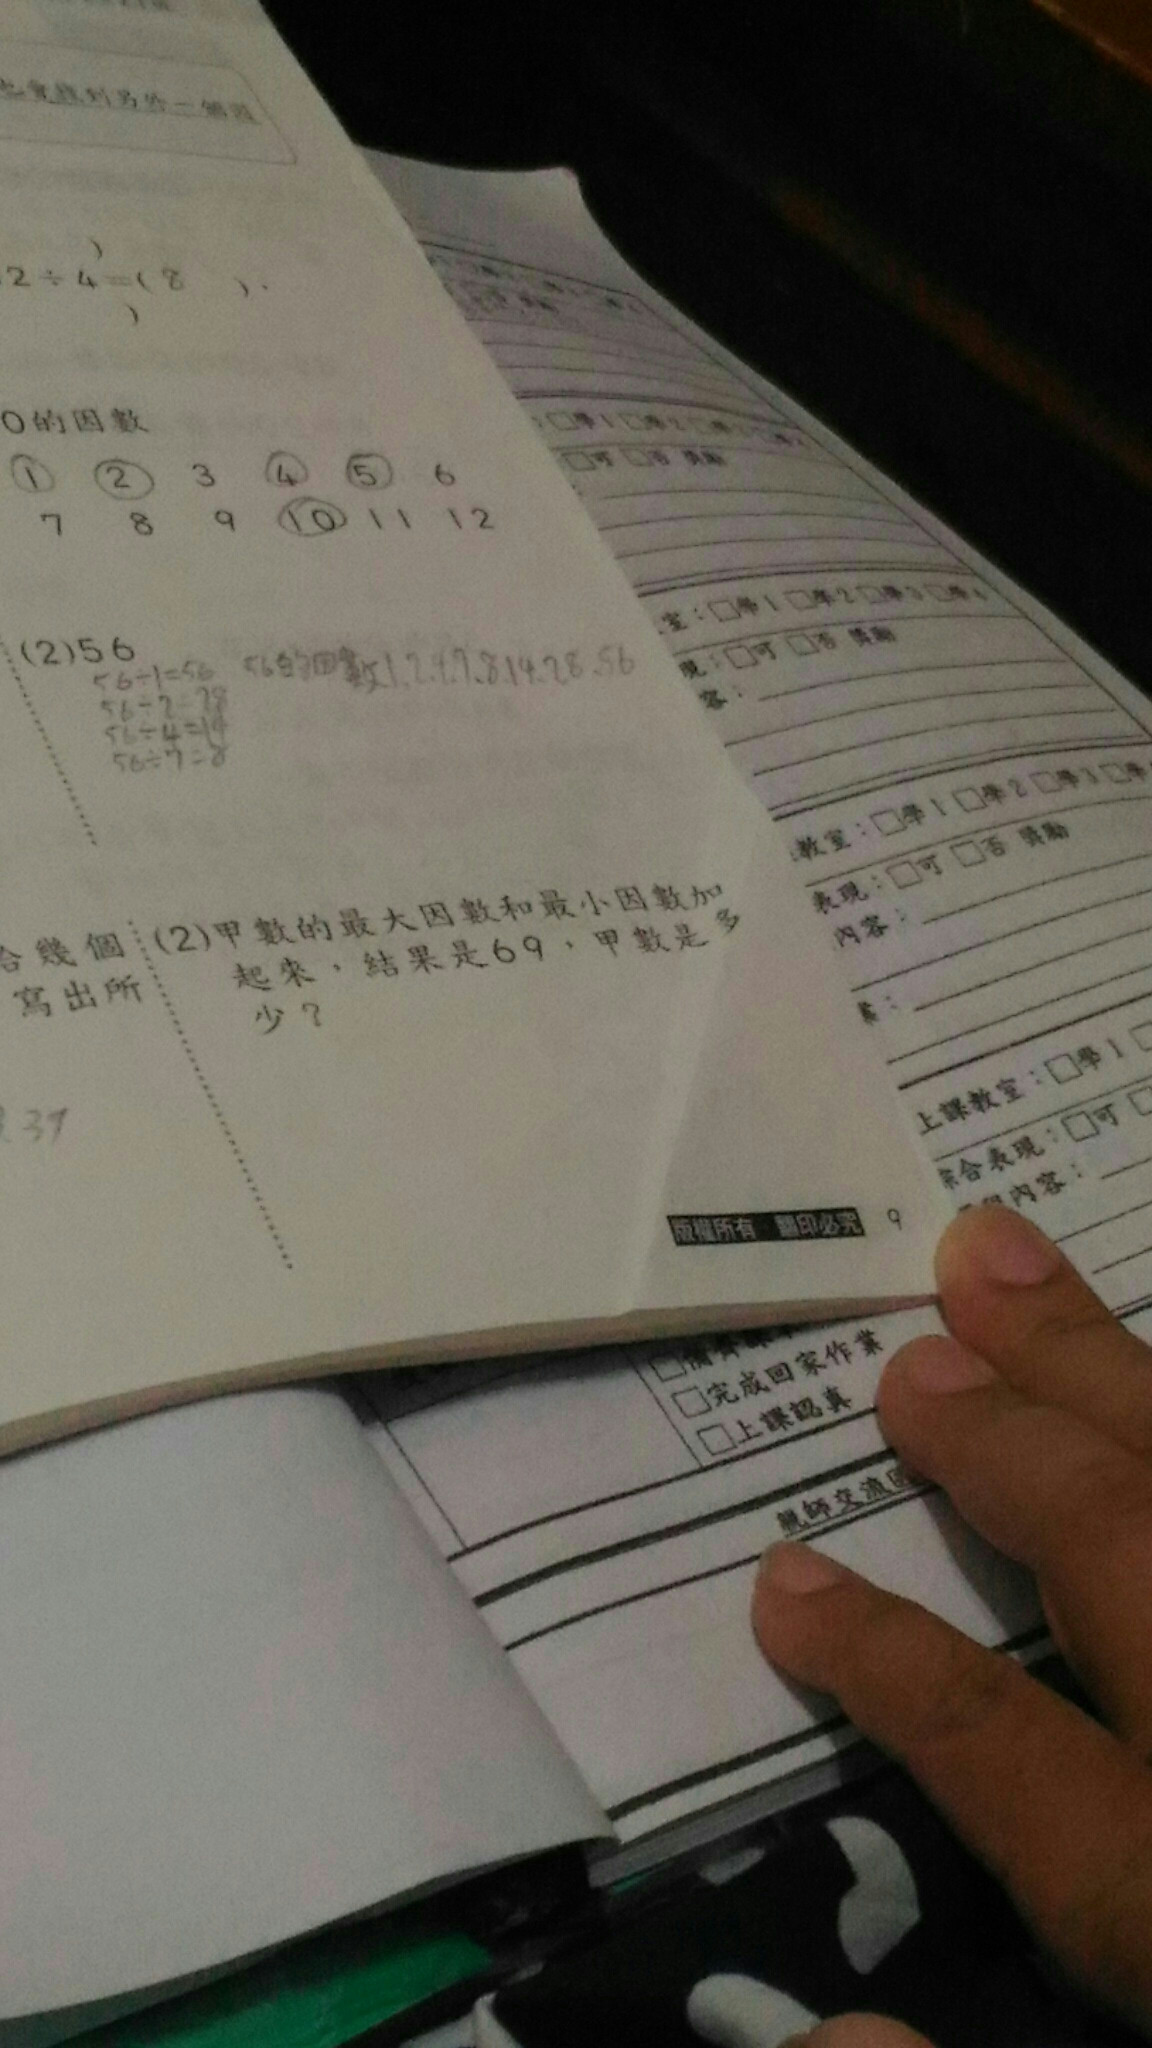 也會找到另外一個因
)
2÷4=(8 ).
)
0的因數
1 2 3 4 5 6
7 8 9 10 11 12
(2)56
56÷1=56 56的因數1.2.4.7.8.14.28.56
56÷2=28
56÷4=14
56÷7=8
給幾個
寫出所
39
(2)甲數的最大因數和最小因數加
起來，結果是69，甲數是多
少？
版權所有 翻印必究 9
□學1 □學2
□可 □否 獎勵
室：□學1 □學2 □學3 □學4
現：□可 □否 獎勵
容：
教室：□學1 □學2 □學3 □學
表現：□可 □否 獎勵
內容：
上課教室：□學1
綜合表現：□可
內容：
□完成回家作業
□上課認真
親師交流